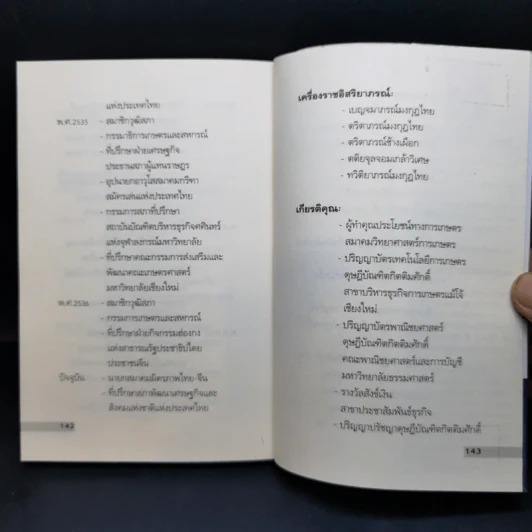 แห่งประเทศไทย
พ.ศ.2535 - สมาชิกวุฒิสภา
- กรรมาธิการเกษตรและสหกรณ์
- ที่ปรึกษาฝ่ายเศรษฐกิจ
ประธานสภาผู้แทนราษฎร
- อุปนายกอาวุโสสมาคมกรีฑา
สมัครเล่นแห่งประเทศไทย
- กรรมการสภาที่ปรึกษา
สถาบันบัณฑิตบริหารธุรกิจศศินทร์
แห่งจุฬาลงกรณ์มหาวิทยาลัย
- ที่ปรึกษาคณะกรรมการส่งเสริมและ
พัฒนาคณะเกษตรศาสตร์
มหาวิทยาลัยเชียงใหม่
พ.ศ.2536 - สมาชิกวุฒิสภา
- กรรมการเกษตรและสหกรณ์
- ที่ปรึกษากิจการฮ่องกง
แห่งสาธารณรัฐประชาธิปไตย
ประชาชนจีน
ปัจจุบัน - นายกสมาคมมิตรภาพไทย-จีน
- ที่ปรึกษาสภาพัฒนาเศรษฐกิจและ
สังคมแห่งชาติแห่งประเทศไทย
142
เครื่องราชอิสริยาภรณ์:
- เบญจมาภรณ์มงกุฎไทย
- ตริตาภรณ์มงกุฎไทย
- ตริตาภรณ์ช้างเผือก
- ตติยจุลจอมเกล้าวิเศษ
- ทวีติยาภรณ์มงกุฎไทย
เกียรติคุณ:
- ผู้ทำคุณประโยชน์ทางการเกษตร
สมาคมวิทยาศาสตร์การเกษตร
- ปริญญาบัตรเทคโนโลยีการเกษตร
ดุษฎีบัณฑิตกิตติมศักดิ์
สาขาบริหารธุรกิจการเกษตรแม่โจ้
เชียงใหม่
- ปริญญาบัตรพาณิชยศาสตร์
ดุษฎีบัณฑิตกิตติมศักดิ์
คณะพาณิชยศาสตร์และการบัญชี
มหาวิทยาลัยธรรมศาสตร์
- รางวัลสังข์เงิน
สาขาประชาสัมพันธ์ธุรกิจ
- ปริญญาปรัชญาดุษฎีบัณฑิตกิตติมศักดิ์
143